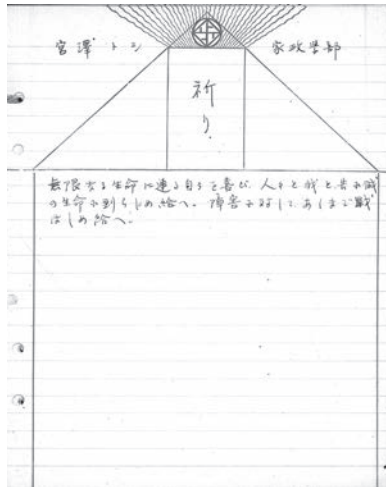 宮澤トシ
家政学部
祈り
無限なる生命に連る自らを喜び、人々と我と
の生命に到らしめ給へ。障害に対して、あくまで戦
はしめ給へ。